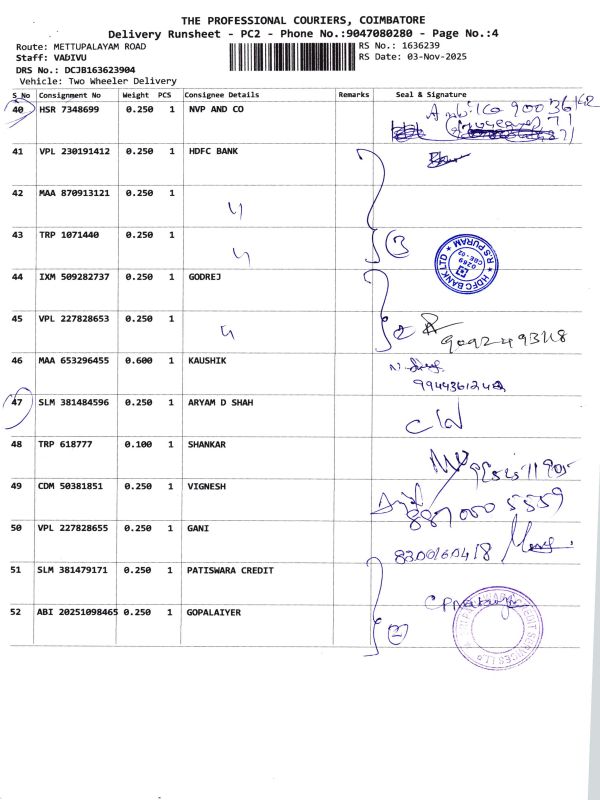 THE PROFESSIONAL COURIERS, COIMBATORE
Delivery Runsheet - PC2 - Phone No.:9047080280 - Page No.:4
Route: METTUPALAYAM ROAD RS No.: 1636239
Staff: VADIVU RS Date: 03-Nov-2025
DRS No.: DCJB163623904
Vehicle: Two Wheeler Delivery
S_No Consignment No Weight PCS Consignee Details Remarks Seal & Signature
40 HSR 7348699 0.250 1 NVP AND CO
41 VPL 230191412 0.250 1 HDFC BANK
42 MAA 870913121 0.250 1 ч
43 TRP 1071440 0.250 1 ч 3
HDFC BANK LTD * R.S PURAM *
0269
CBE-02
44 IXM 509282737 0.250 1 GODREJ
45 VPL 227828653 0.250 1 ч 2
46 MAA 653296455 0.600 1 KAUSHIK
47 SLM 381484596 0.250 1 ARYAM D SHAH
48 TRP 618777 0.100 1 SHANKAR
49 CDM 50381851 0.250 1 VIGNESH
887000 5559
50 VPL 227828655 0.250 1 GANI
8300160418
51 SLM 381479171 0.250 1 PATISWARA CREDIT
52 ABI 20251098465 0.250 1 GOPALAIYER 2